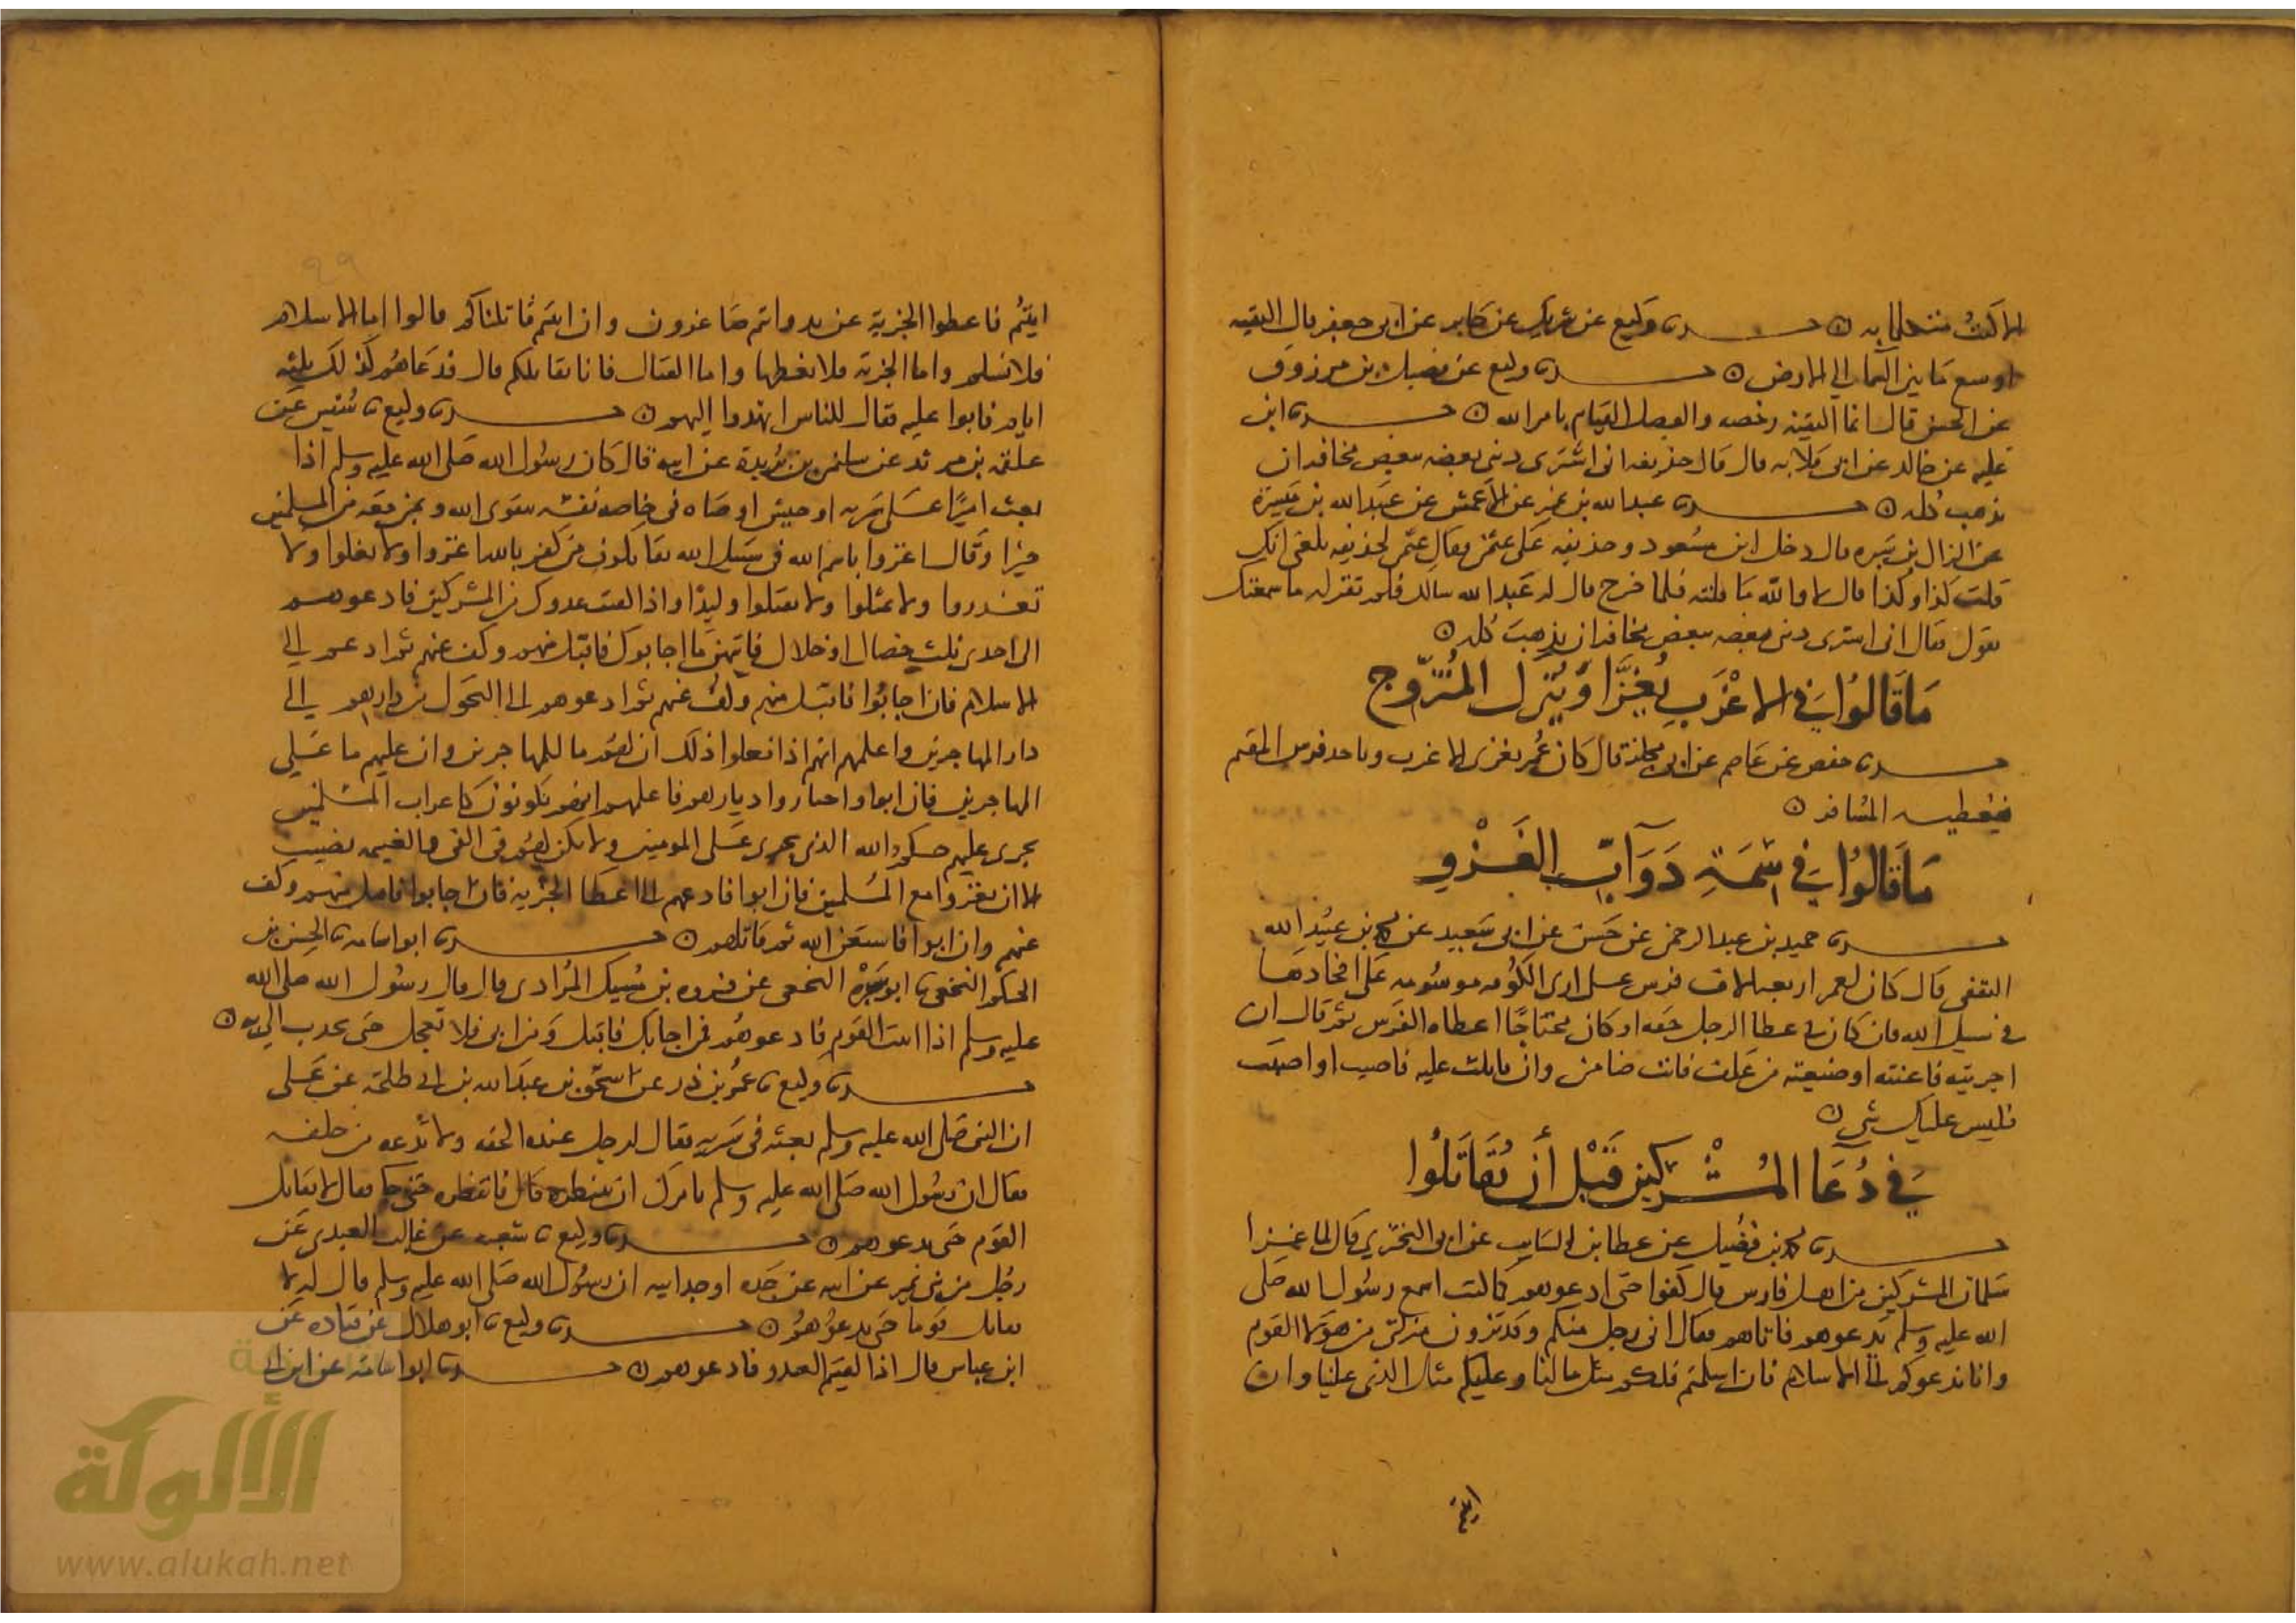 الا كنت متكلما به ○ حدثنا وكيع عن شريك عن جابر عن ابى جعفر قال التقيه
اوسع ما بين السما الى الارض ○ حدثنا وكيع عن فضيل بن مرزوق
عن الحسن قال انما التقيه رخصه والفضل القيام بامر الله ○ حدثنا ابن
عليه عن خالد عن ابى قلابه قال قال حذيفه انى اشترى دينى بعضه ببعض مخافه ان
يذهب كله ○ حدثنا عبد الله بن نمير عن الاعمش عن عبد الملك بن ميسرة
عن النزال بن سبره قال دخل ابن مسعود وحذيفه على عثمن فقال عثمن لحذيفه بلغنى انك
قلت كذا وكذا قال لا والله ما قلته فلما خرج قال له عبد الله سالك فلم تقر له ما سمعتك
تقول فقال انى اشترى دينى بعضه ببعض مخافه ان يذهب كله ○
ما قالوا فى الاعزب يغزا ويترك المتزوج
حدثنا حفص عن عاصم عن ابى مجلز قال كان عمر يغزى الاعزب وياخذ فرس المقيم
فيعطيه المسافر ○
ما قالوا فى سمة دوآب الغزو
حدثنا حميد بن عبد الرحمن عن حسن عن ابى سعيد عن محمد بن عبيد الله
الثقفى قال كان لعمر اربعه الاف فرس على ارى الكوفه موسومه على افخادها
فى سبيل الله فان كان فى عطا الرجل خفه او كان محتاجا اعطاه الفرس ثم قال ان
اجريته فاعنته او ضيعته من علف فانت ضامن وان قاتلت عليه فاصيب او اصبت
فليس عليك شى ○
فى دعا المشركين قبل أن يقاتلوا
حدثنا محمد بن فضيل عن عطا بن السايب عن ابى البخترى قال لما غزا
سلمان المشركين من اهل فارس قال كفوا حتى ادعوهم كما كنت اسمع رسول الله صلى
الله عليه وسلم يدعوهم فاتاهم فقال انى رجل منكم وقد ترون منزلتى من هولا القوم
وانا ندعوكم الى الاسلام فان اسلمتم فلكم مثل ما لنا وعليكم مثل الذى علينا وان
ابيتم
99
ابيتم فاعطوا الجزية عن يد وانتم صاغرون وان ابيتم قاتلناكم قالوا اما الاسلام
فلا نسلم واما الجزية فلا نعطيها واما القتال فانا نقاتلكم قال فدعاهم كذلك ثلثه
ايام فابوا عليه فقال للناس انهدوا اليهم ○ حدثنا وكيع ثنا سفين عن
علقمه بن مرثد عن سليمن بن بريدة عن ابيه قال كان رسول الله صلى الله عليه وسلم اذا
بعث اميرا على سريه او جيش اوصاه فى خاصه نفسه بتقوى الله وبمن معه من المسلمين
خيرا وقال اغزوا باسم الله فى سبيل الله تقاتلون من كفر بالله اغزوا ولا تغلوا ولا
تغدروا ولا تمثلوا ولا تقتلوا وليدا واذا لقيت عدوك من المشركين فادعوهم
الى احدى ثلث خصال او خلال فايتهن ما اجابوك فاقبل منهم وكف عنهم ثم ادعهم الى
الاسلام فان اجابوا فاقبل منهم وكف عنهم ثم ادعوهم الى التحول من دارهم الى
دار المهاجرين واعلمهم انهم اذا فعلوا ذلك ان لهم ما للمهاجرين وان عليهم ما على
المهاجرين فان ابوا واختاروا ديارهم فاعلمهم انهم يكونون كاعراب المسلمين
يجرى عليهم حكم الله الذى يجرى على المومنين ولا يكن لهم فى الفى والغنيمه نصيب
الا ان يغزوا مع المسلمين فان ابوا فادعهم الى اعطا الجزيه فان اجابوا فاقبل منهم وكف
عنهم وان ابوا فاستعن الله ثم قاتلهم ○ حدثنا ابو اسامه ثنا الحسن بن
الحكم النخعى ثنا ابو سبرة النخعى عن فروه بن مسيك المرادى قال قال رسول الله صلى الله
عليه وسلم اذا اتيت القوم فادعوهم فمن اجابك فاقبل ومن ابى فلا تعجل حتى تحدث الى به ○
حدثنا وكيع ثنا عمر بن ذر عن اسحق بن عبد الله بن ابى طلحة عن على
ان النبى صلى الله عليه وسلم بعثه فى سريه فقال لرجل عنده الحقه ولا تدعه من خلفه
فقال ان رسول الله صلى الله عليه وسلم يامرك ان تنتظره قال فانتظره حتى جا فقال لا تقاتل
القوم حتى تدعوهم ○ حدثنا وكيع ثنا شعبه عن غالب العبدى عن
رجل من بنى نمير عن ابيه عن جده او جد ابيه ان رسول الله صلى الله عليه وسلم قال له لا
تقاتل قوما حتى تدعوهم ○ حدثنا وكيع ثنا ابو هلال عن قتاده عن
ابن عباس قال اذا لقيتم العدو فادعوهم ○ حدثنا ابو اسامة عن ابن ابى
الألوكة
www.alukah.net